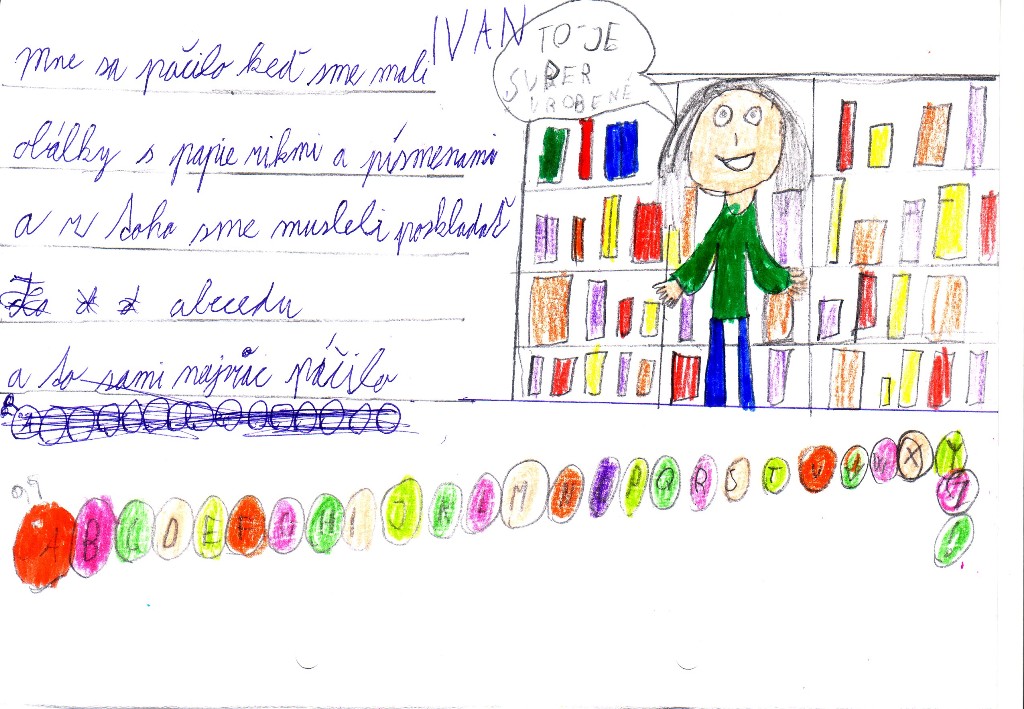 IVAN
TO-JE
SUPER
UROBENÉ
Mne sa páčilo keď sme mali
obálky s papierikmi a písmenami
a z toho sme museli poskladať
abecedu
a to sami najviac páčilo
A B C D E F G H I J K L M N O P Q R S T U V W X Y